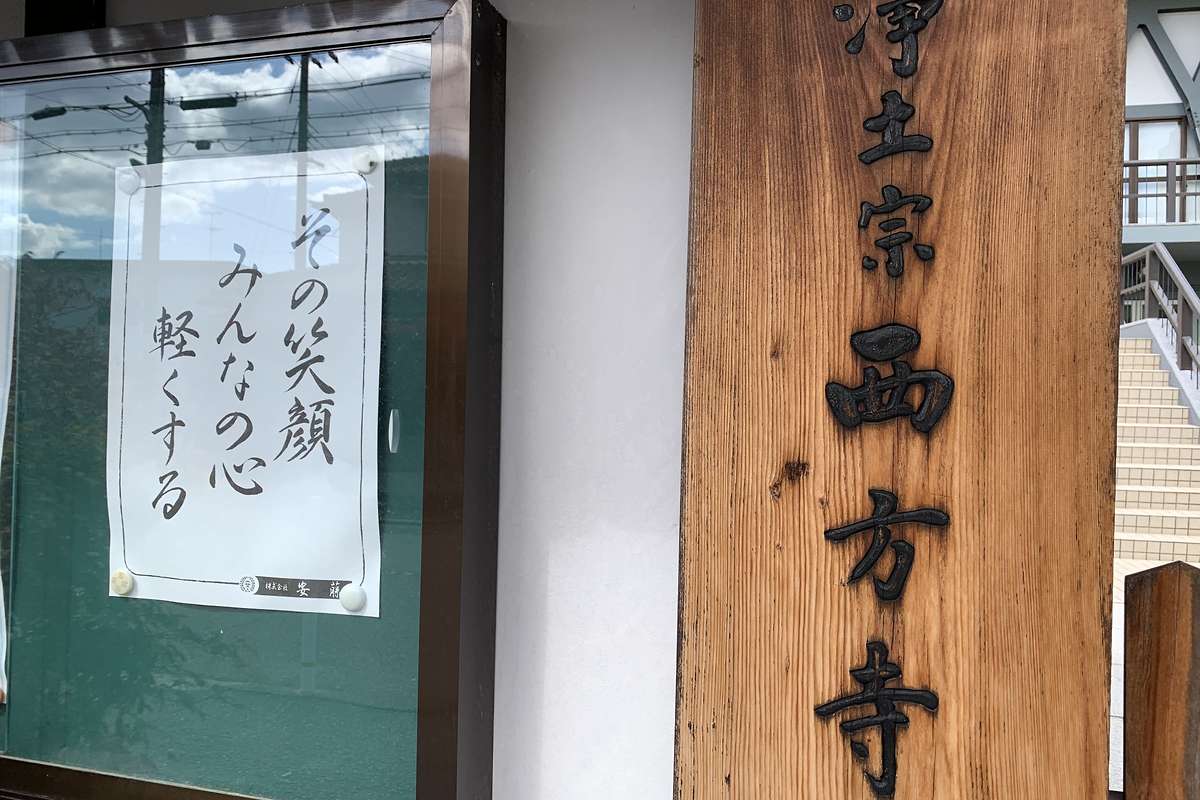 浄土宗西方寺
その笑顔
みんなの心
軽くする
株式会社 安